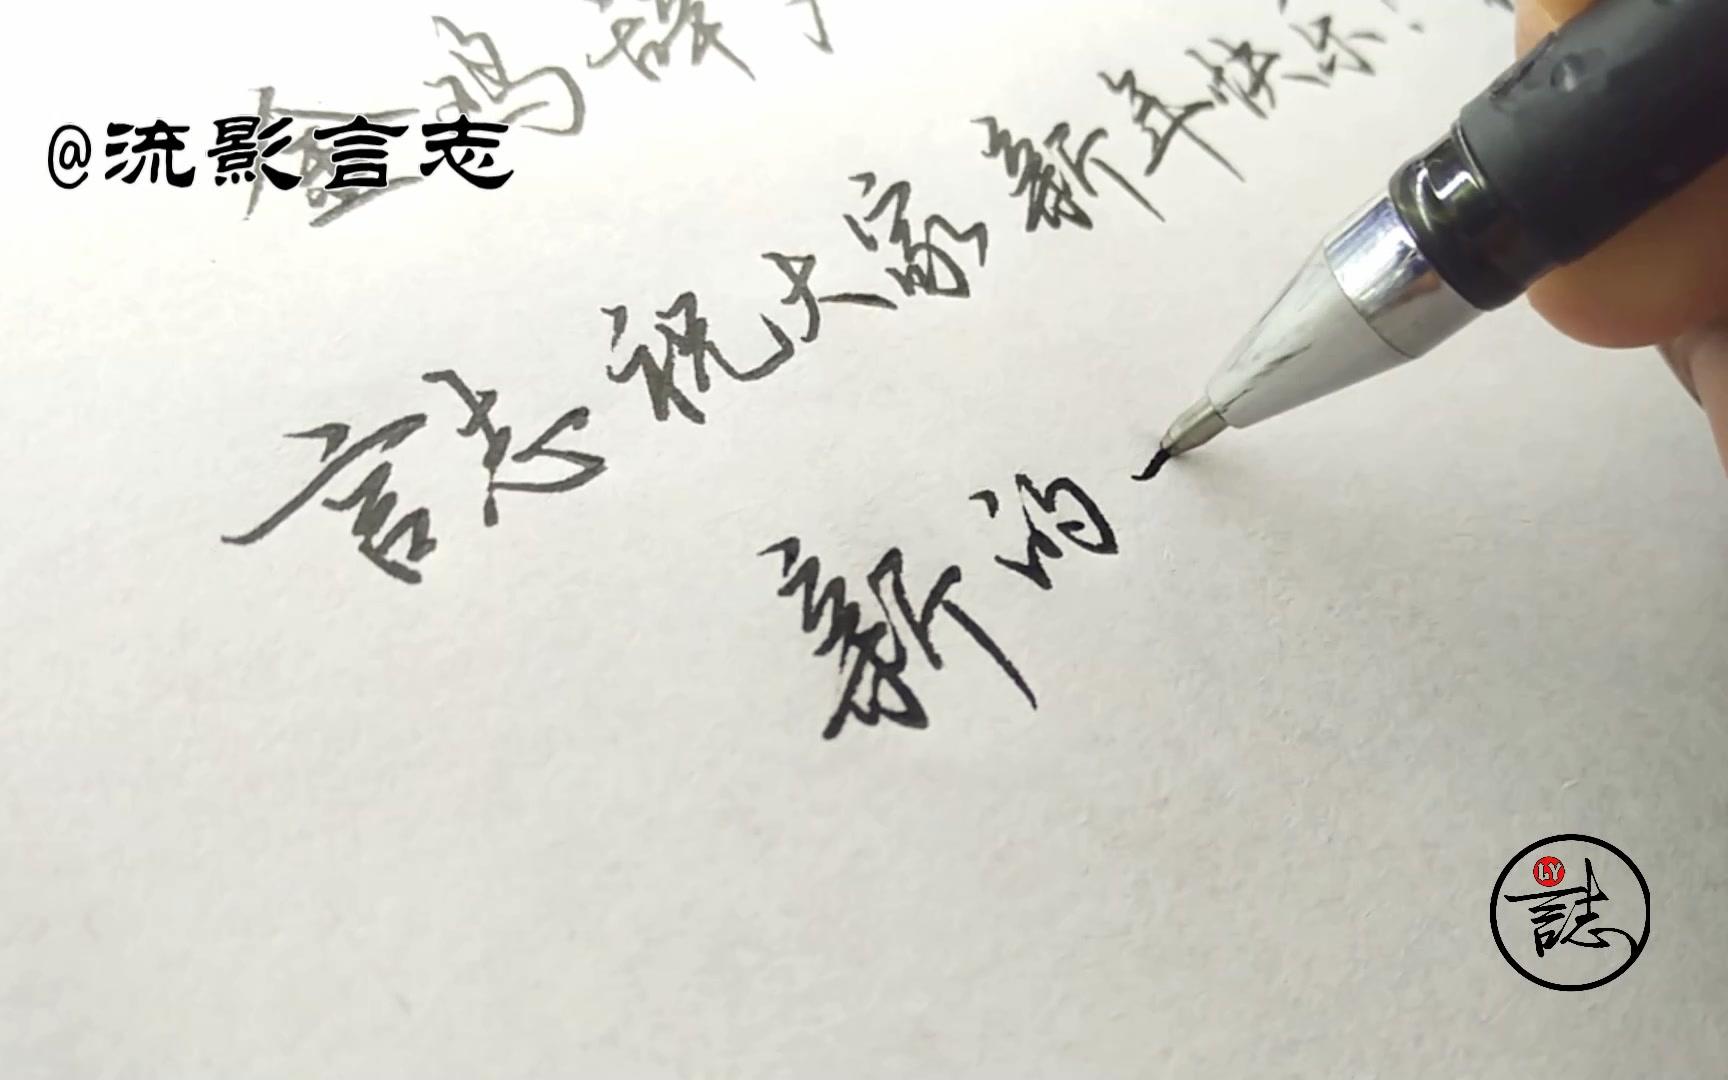 金鸡
@流影言志
言志祝大家新年快乐!
新的
LY
誌